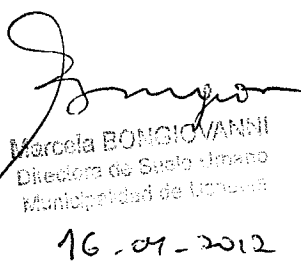 Marcela BONGIOVANNI
Directora de Suelo Urbano
Municipalidad de
16-01-2012